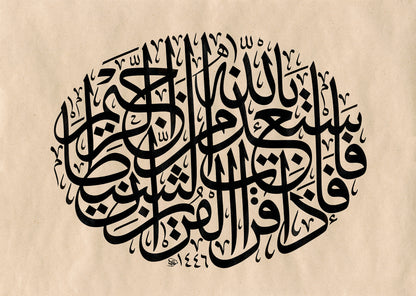 فإذا قرأت القرآن فاستعذ بالله من الشيطان الرجيم
١٤٤٦